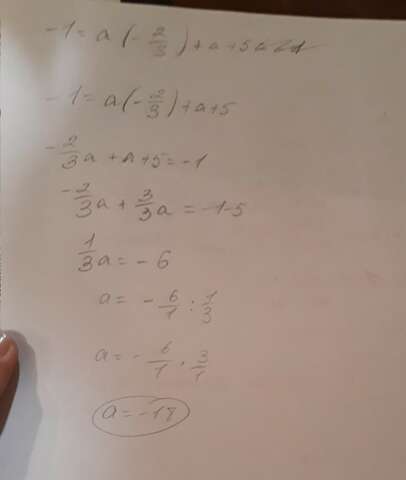 -1 = a (-2/3) + a + 5
-1 = a (-2/3) + a + 5
-2/3 a + a + 5 = -1
-2/3 a + 3/3 a = -1-5
1/3 a = - 6
a = - 6/1 : 1/3
a = - 6/1 . 3/1
a = -18